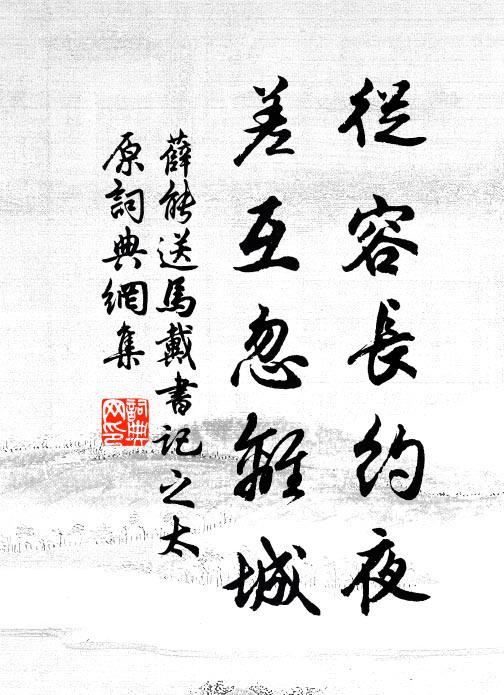 從容長約夜
差互忽離城
薛能送馬戴書記之太
原詞典網集
詞典
网印